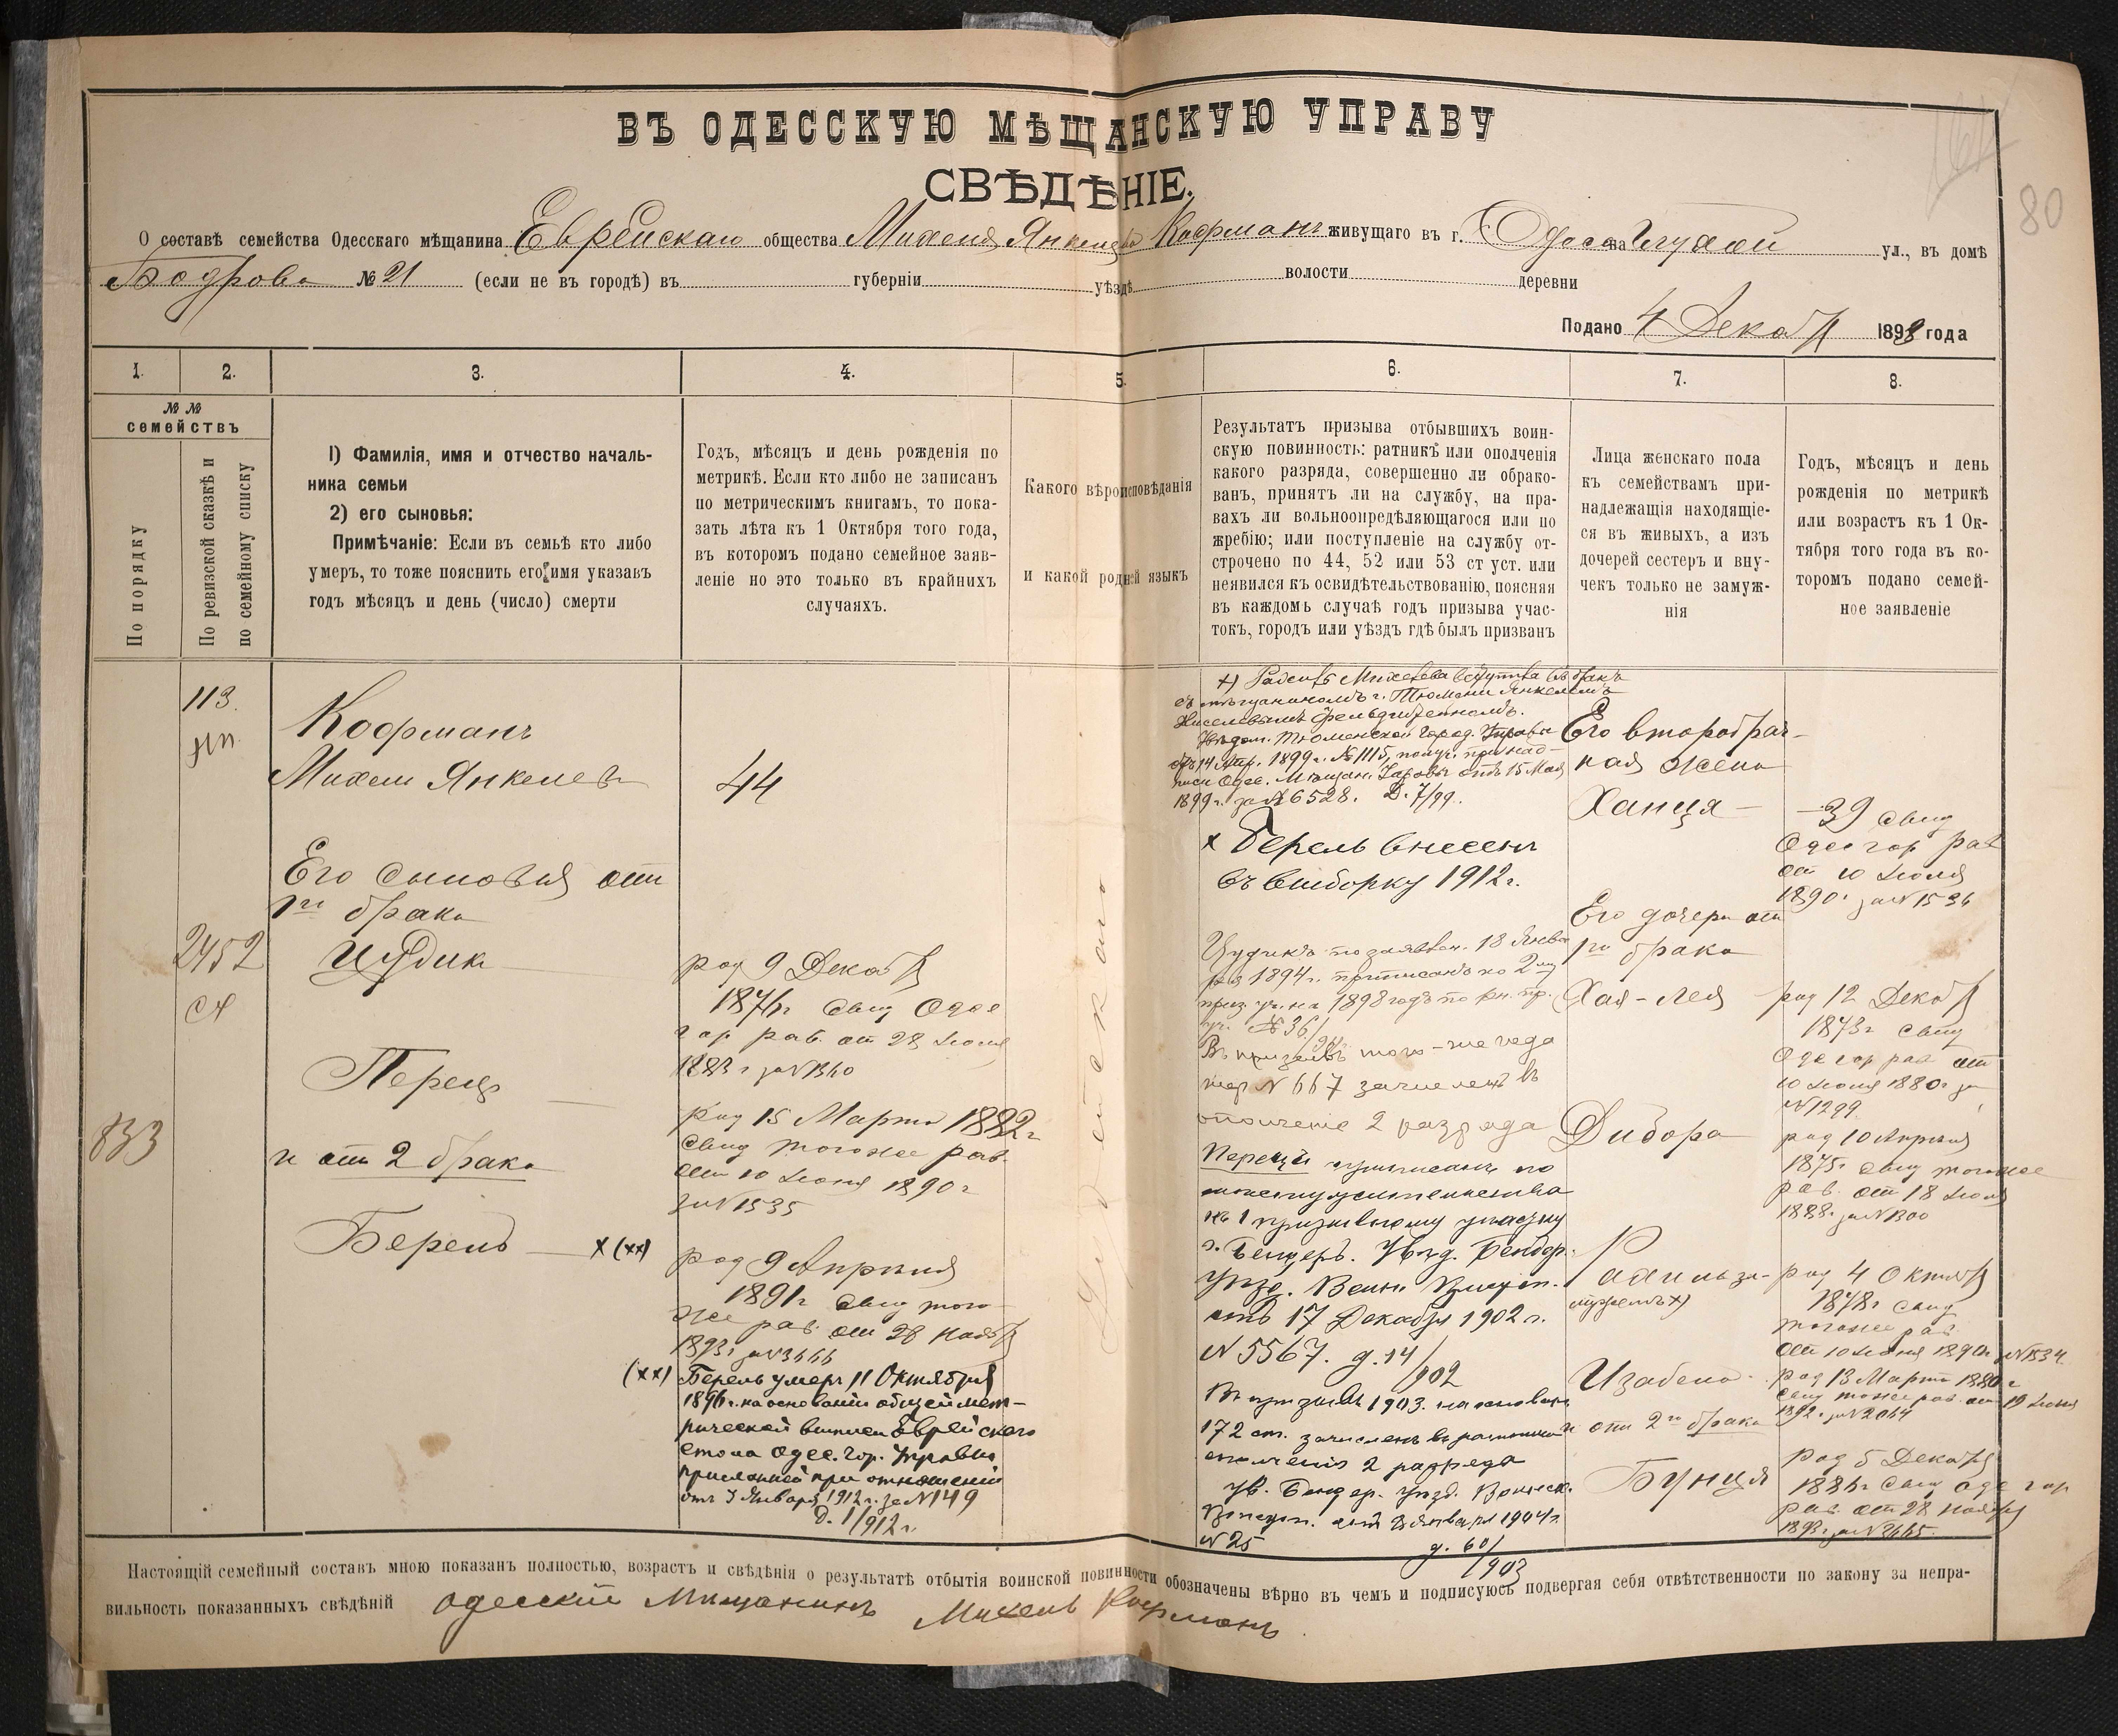 164
80
ВЪ ОДЕССКУЮ МѢЩАНСКУЮ УПРАВУ
СВѢДѢНІЕ.
О составѣ семейства Одесскаго мѣщанина Еврейскаго общества Михеля Янкелева Кофманъ живущаго въ г. Одесса на Глухой ул., въ домѣ
Бодрова № 21 (если не въ городѣ) въ губерніи уѣздѣ волости деревни
Подано 4 Декаб 1893 года
1. 2. 3. 4. 5. 6. 7. 8.
№№ семействъ
По порядку
По ревизской сказкѣ и
по семейному списку
1) Фамилія, имя и отчество началь-
ника семьи
2) его сыновья:
Примѣчаніе: Если въ семьѣ кто либо
умеръ, то тоже пояснить его имя указавъ
годъ мѣсяцъ и день (число) смерти
Годъ, мѣсяцъ и день рожденія по
метрикѣ. Если кто либо не записанъ
по метрическимъ книгамъ, то пока-
зать лѣта къ 1 Октября того года,
въ которомъ подано семейное заяв-
леніе но это только въ крайнихъ
случаяхъ.
Какого вѣроисповѣданія
и какой родной языкъ
Результатъ призыва отбывшихъ воин-
скую повинность: ратникъ или ополченія
какого разряда, совершенно ли обрако-
ванъ, принятъ ли на службу, на пра-
вахъ ли вольноопредѣляющагося или по
жребію; или поступленіе на службу от-
строчено по 44, 52 или 53 ст уст. или
неявился къ освидѣтельствованію, поясняя
въ каждомъ случаѣ годъ призыва учас-
токъ, городъ или уѣздъ гдѣ былъ призванъ
Лица женскаго пола
къ семействамъ при-
надлежащія находящіе-
ся въ живыхъ, а изъ
дочерей сестеръ и вну-
чекъ только не замуж-
нія
Годъ, мѣсяцъ и день
рожденія по метрикѣ
или возрастъ къ 1 Ок-
тября того года въ ко-
торомъ подано семей-
ное заявленіе
113
2452
833
Кофманъ
Михель Янкелев
Его сыновья отъ
1го брака
Цудик
Перец
и отъ 2 брака
Берель х (хх)
44
род 9 Декаб
1876г свид Одес
гор рав. от 28 Июня
1883 г за N 1360
род 15 Марта 1882г
свид тогоже рав.
от 10 Июня 1890 г
за N 1535
род 9 Апреля
1891г свид того
же рав. от 28 Нояб
1893г за N 3666
(хх) Берель умеръ 11 Октября
1896г. на основаніи общей мет-
рической выписи Еврейскаго
стола Одес. Гор. Управы
присланной при отношеніи
отъ 3 Января 1912 г. за N 149
д. 1/912 г.
Іудейскаго
х) Михелева вступила въ бракъ
съ мѣщаниномъ г. Тюмени Янкелемъ
Увѣдом. Тюменской Город. Управы
отъ 14 Апр. 1899 г. № 1115, получ. при над-
писи Одес. Мѣщан. Управы отъ 15 Мая
1899 г. за № 6528. Д. 7/99.
х Берель внесенъ
въ выборку 1912 г.
Цудикъ по заявлен. 13 Янва-
ря 1894 г. приписанъ ко 2му
приз. уч. на 1898 годъ
№ 36/94
Въ призывъ того-же года
жер N 667 зачисленъ въ
ополченіе 2 разряда
Перецъ приписанъ по
къ 1 призывному участку
г. Бендеръ. Увѣд. Бендер.
Уѣзд. Воин Присут.
отъ 17 Декабря 1902 г.
N 5567. д. 14/902
Въ призывъ 1903. на основан.
172 ст. зачисленъ въ ратники
ополченія 2 разряда
Ув. Бендер. Уѣзд. Воинск.
Присут. отъ 2 Января 1904 г.
N 25 д. 60/903
Его второбрач-
ная жена
Ханця
Его дочери отъ
1го брака
Хая-Лея
Дибора
замужемъ х)
Изабела
и отъ 2го брака
Бунця
39 свид
Одес гор рав
от 10 Июня
1890г за N 1536
род 12 Декаб
1873г свид
Одес гор рав от
10 Июня 1880г за
N 1299
род 10 Апреля
1875г свид тогоже
рав. от 18 Июня
1888г за N 1300
род 4 Октяб
1878г свид
тогоже рав
от 10 Июня 1890г за N 1534
род 13 Марта 1880 г
свид тогоже рав. от 19 Июня
1892г за N 2064
род 5 Декаб
1886г свид Одес гор
рав. от 28 Ноября
1893г за N 3665.
Настоящій семейный составъ мною показанъ полностью, возрастъ и свѣдѣнія о результатѣ отбытія воинской повинности обозначены вѣрно въ чемъ и подписуюсь подвергая себя отвѣтственности по закону за непра-
вильность показанныхъ свѣдѣній одесскій Мещанинъ Михель Кофманъ